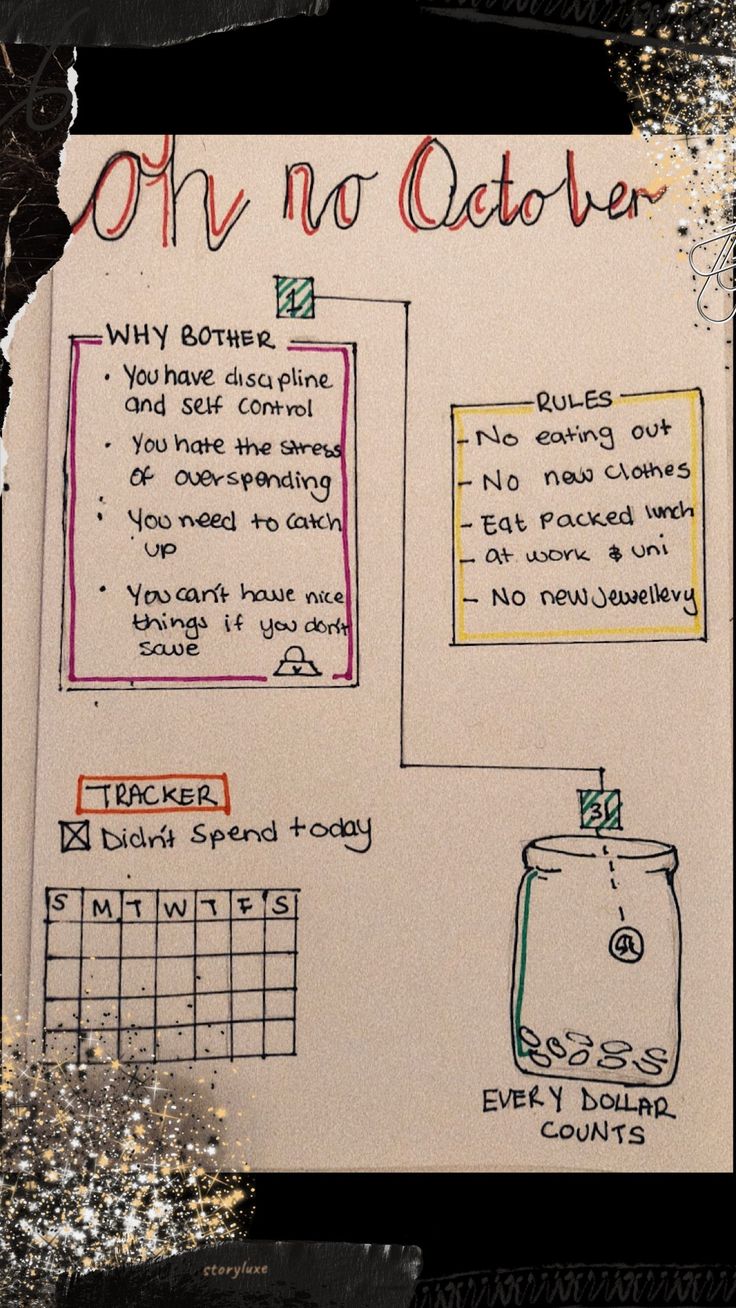 Oh no October
1
WHY BOTHER
• You have discipline
and self control
• You hate the stress
of overspending
• You need to catch
up
• You can't have nice
things if you don't
save
RULES
- No eating out
- No new clothes
- Eat packed lunch
- at work & uni
- No new jewellery
TRACKER
Didn't spend today
S M T W T F S
31
EVERY DOLLAR
COUNTS
storyluxe